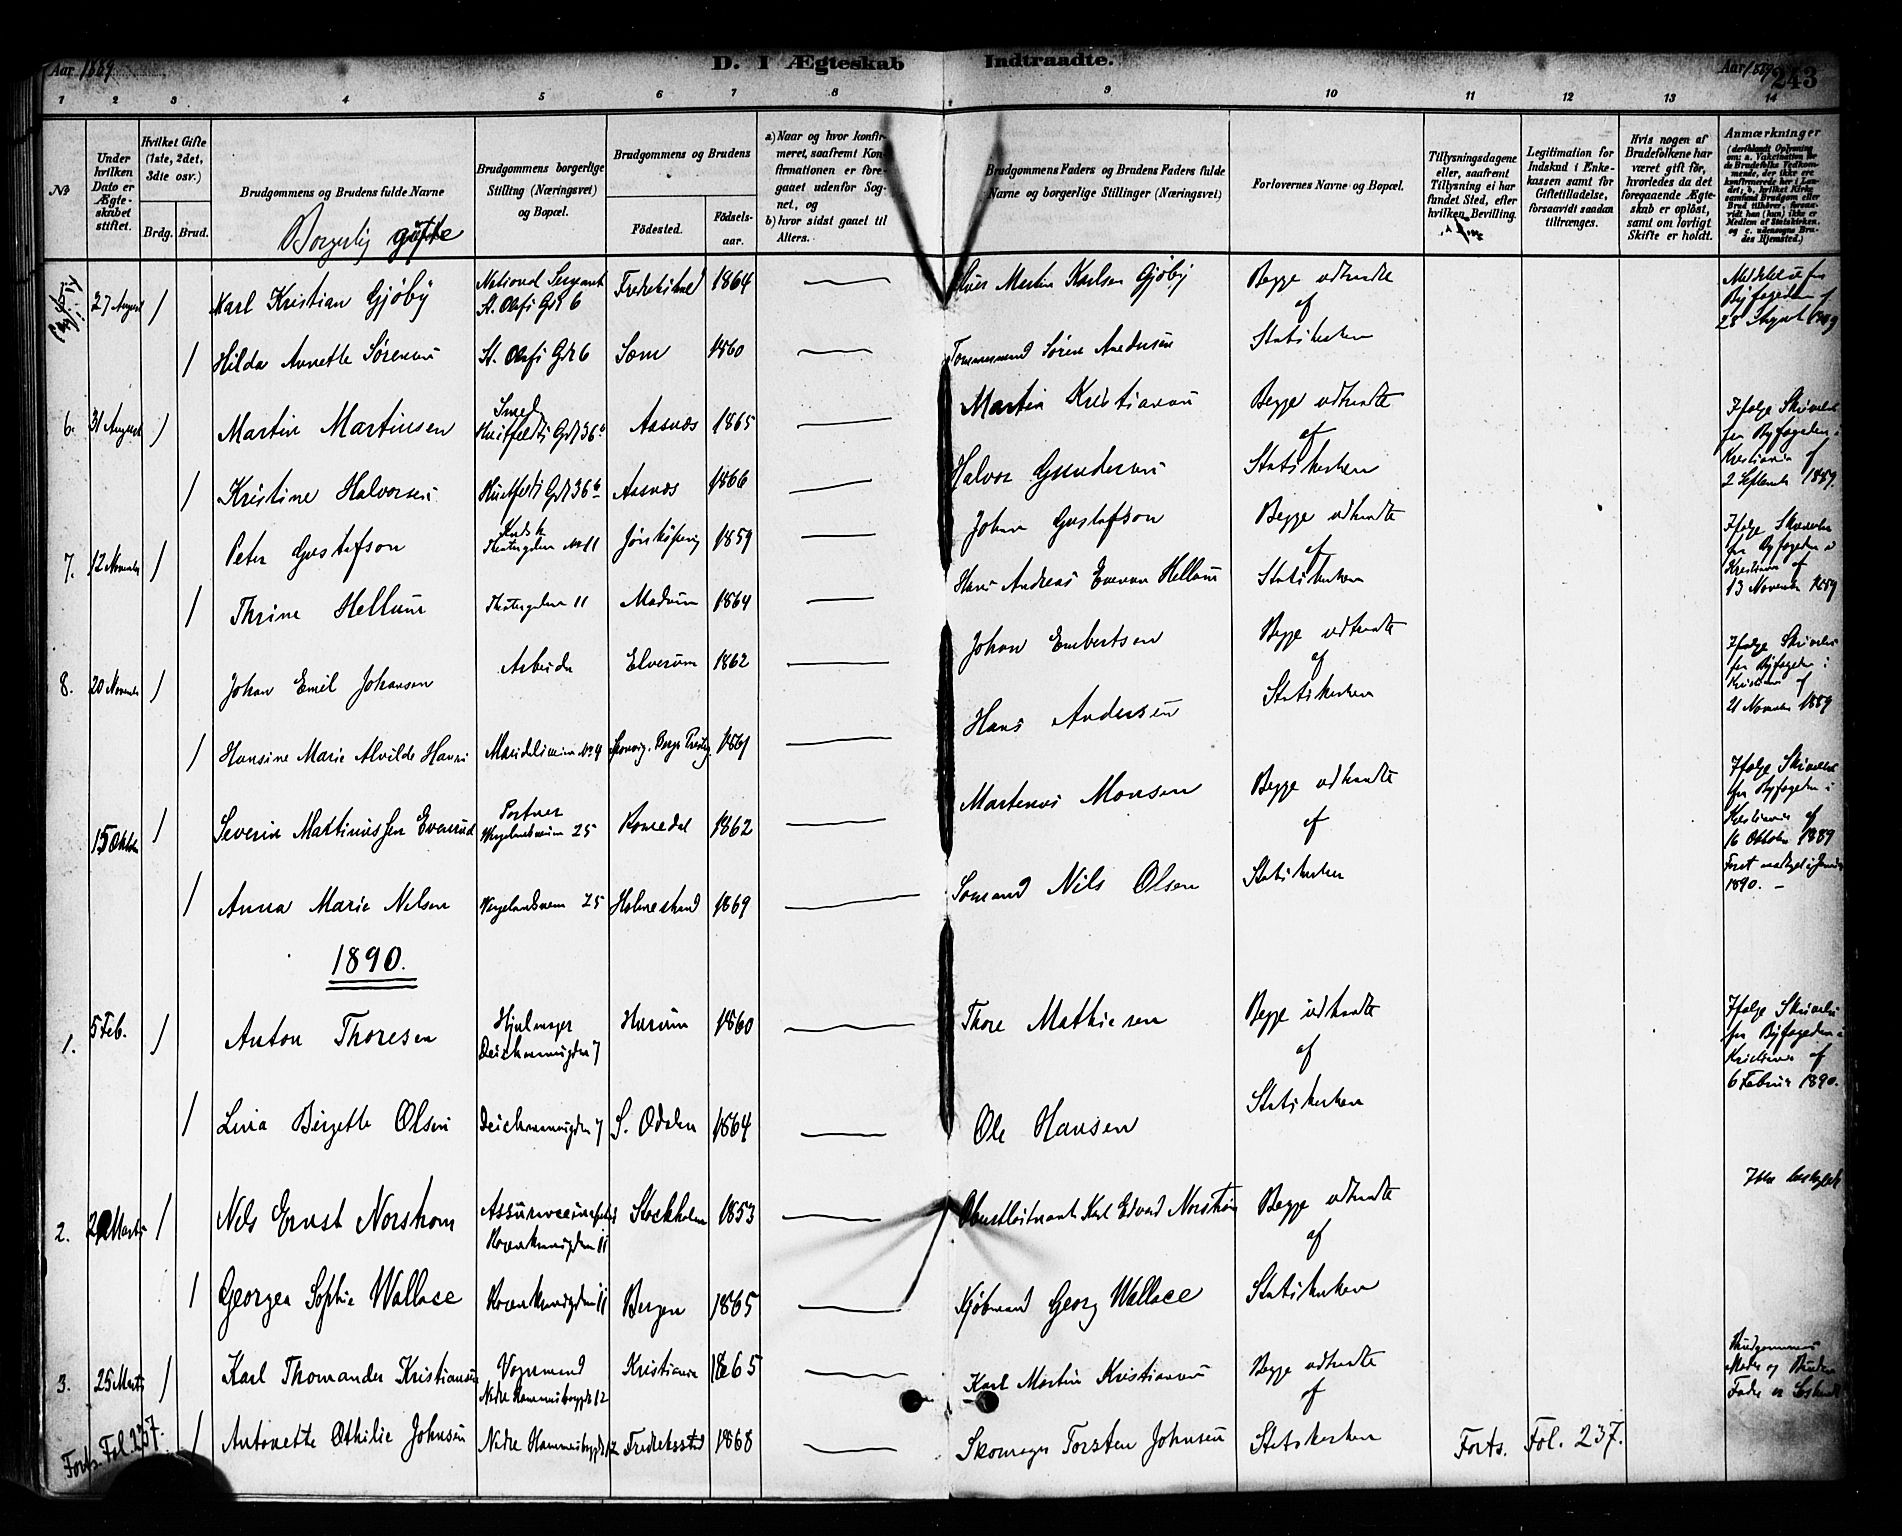 Aar 1889
D. I Ægteskab Indtraadte.
Aar 1889
243
1 2 3 4 5 6 7 8 9 10 11 12 13 14
No
Under hvilken Dato er Ægteskabet stiftet.
Hvilket Gifte (1ste, 2det, 3die osv.)
Brdg. Brud.
Brudgommens og Brudens fulde Navne
Brudgommens borgerlige Stilling (Næringsvei) og Bopæl.
Brudgommens og Brudens
Fødested.
Fødselsaar.
a) Naar og hvor konfirmeret, saafremt Konfirmationen er foregaaet udenfor Sognet, og
b) hvor sidst gaaet til Alters.
Brudgommens Faders og Brudens Faders fulde Navne og borgerlige Stillinger (Næringsvei)
Forlovernes Navne og Bopæl.
Tillysningsdagene eller, saafremt Tillysning ei har fundet Sted, efter hvilken Bevilling.
Legitimation for Indskud i Enkekassen samt for Giftetilladelse, forsaavidt saadan tiltrænges.
Hvis nogen af Brudefolkene har været gift før, hvorledes da det foregaaende Ægteskab er opløst, samt om lovligt Skifte er holdt.
Anmærkninger
Borgerlig gifte
27 August 1 Karl Kristian Gjøby National Sergeant St. Olafs Gd 6 Fredrikshald 1864 Martin Karlsen Gjøby Begge udtraadte af
28 August 1889
1 Hilda Annette Sørensen St. Olafs Gd 6 1860 Tømmermand Søren Andersen Statskirken
6. 31 August 1 Martin Martinsen Smed Huitfeldts Gd 36b Aasnæs 1865 Martin Kristiansen Begge udtraadte af
Ifølge Skrivelse fra Byfogeden i Kristiania af 2 September 1889.
1 Kristine Halvorsen Huitfeldts Gd 36b Aasnæs 1866 Halvor Gundersen Statskirken
7. 12 November 1 Peter Gustafson Kusk Theatergaden No 11 Jønkøping 1859 Johan Gustafson Begge udtraadte af
Ifølge Skrivelse fra Byfogeden i Kristiania af 13 November 1889
1 Thrine Hellum Theatergaden 11 Modum 1864 Hans Andreas Hellum Statskirken
8. 20 November 1 Johan Emil Johansen Arbeider Elverum 1862 Johan Embertsen Begge udtraadte af
Ifølge Skrivelse fra Byfogeden i Kristiania af 21 November 1889
1 Hansine Marie Alvilde Hansen No 4 1861 Hans Andersen Statskirken
15 Oktober 1 Severin Martinussen Evensen Portner Wergelandsveien 25 Romedal 1862 Martinus Monsen Begge udtraadte af
Ifølge Skrivelse fra Byfogeden i Kristiania af 16 Oktober 1889
Først modtaget i Januar 1890. –
1 Anna Marie Nilsen Wergelandsveien 25 Holmestrand 1869 Sømand Nils Olsen Statskirken
1890.
1. 5 Feb. 1 Anton Thoresen Hjulmager Deichmannsgaden 7 Hurum 1860 Thore Mathiesen Begge udtraadte af
Ifølge Skrivelse fra Byfogeden i Kristiania af 6 Februar 1890.
1 Lina Birgette Olsen Deichmannsgaden 7 S. Odalen 1864 Ole Hansen Statskirken
2. Marts 1 Nils Ernst Norstrom Rosenkrantzgaden 11 Stockholm 1853 Oberstløitnant Karl Edvard Norstrøm Begge udtraadte af
Ikke beslægtet
1 Georgea Sophie Wallace Rosenkrantzgaden 11 Bergen 1865 Kjøbmand Georg Wallace Statskirken
3. 25 Marts 1 Karl Thomander Kristiansen Vognmand Nedre Hammersborggd 12 Kristiania 1865 Karl Martin Kristiansen Begge udtraadte af
Brudgommens Moder og Brudens Fader er Søskende
1 Antonette Othilie Johnsen Nedre Hammersborggd 12 Fredriksstad 1868 Skomager Torsten Johnsen Statskirken
Forts. Fol. 237.
Forts. Fol. 237.